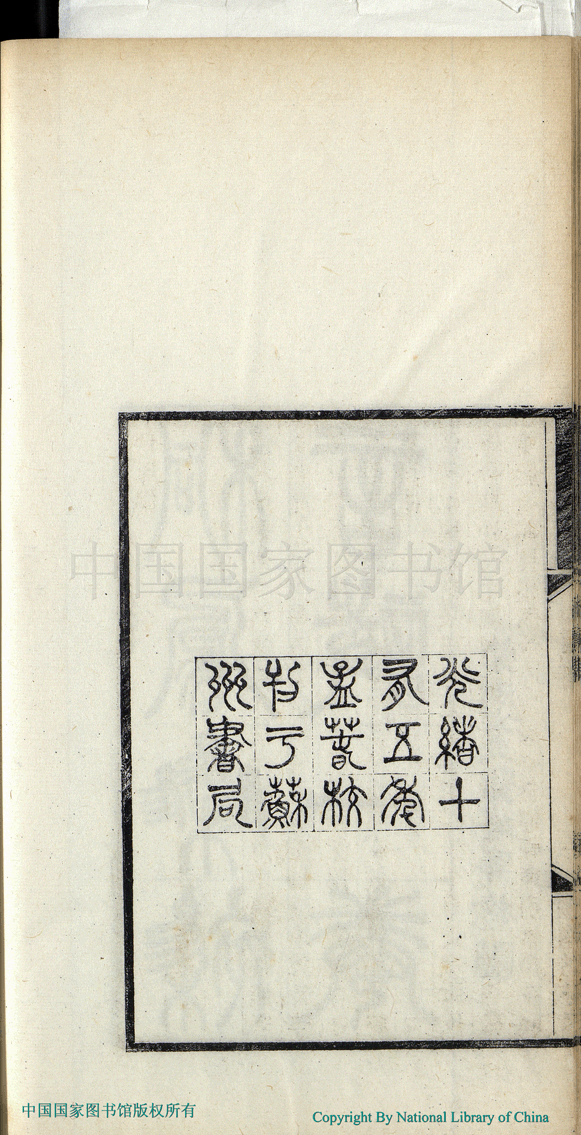 中国国家图书馆
光緒十
有五年
孟春校
刊于蘇
州書局
中国国家图书馆版权所有
Copyright By National Library of China